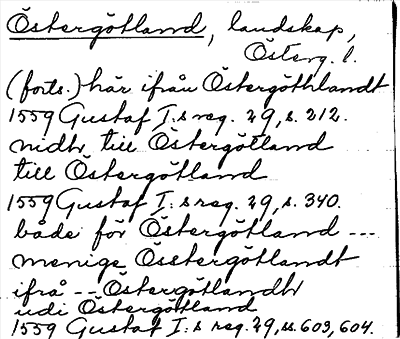 Östergötland, landskap,
Österg. l.
(forts.) här ifrån Östergöthlandt
1559 Gustaf I:s reg. 29, s. 212.
nidhr till Östergötland
till Östergötland
1559 Gustaf I:s reg. 29, s. 340.
både för Östergötland ---
menige Össtergötlandt
ifrå -- Östergötlandhr
udi Östergötland
1559 Gustaf I:s reg. 29, ss. 603, 604.